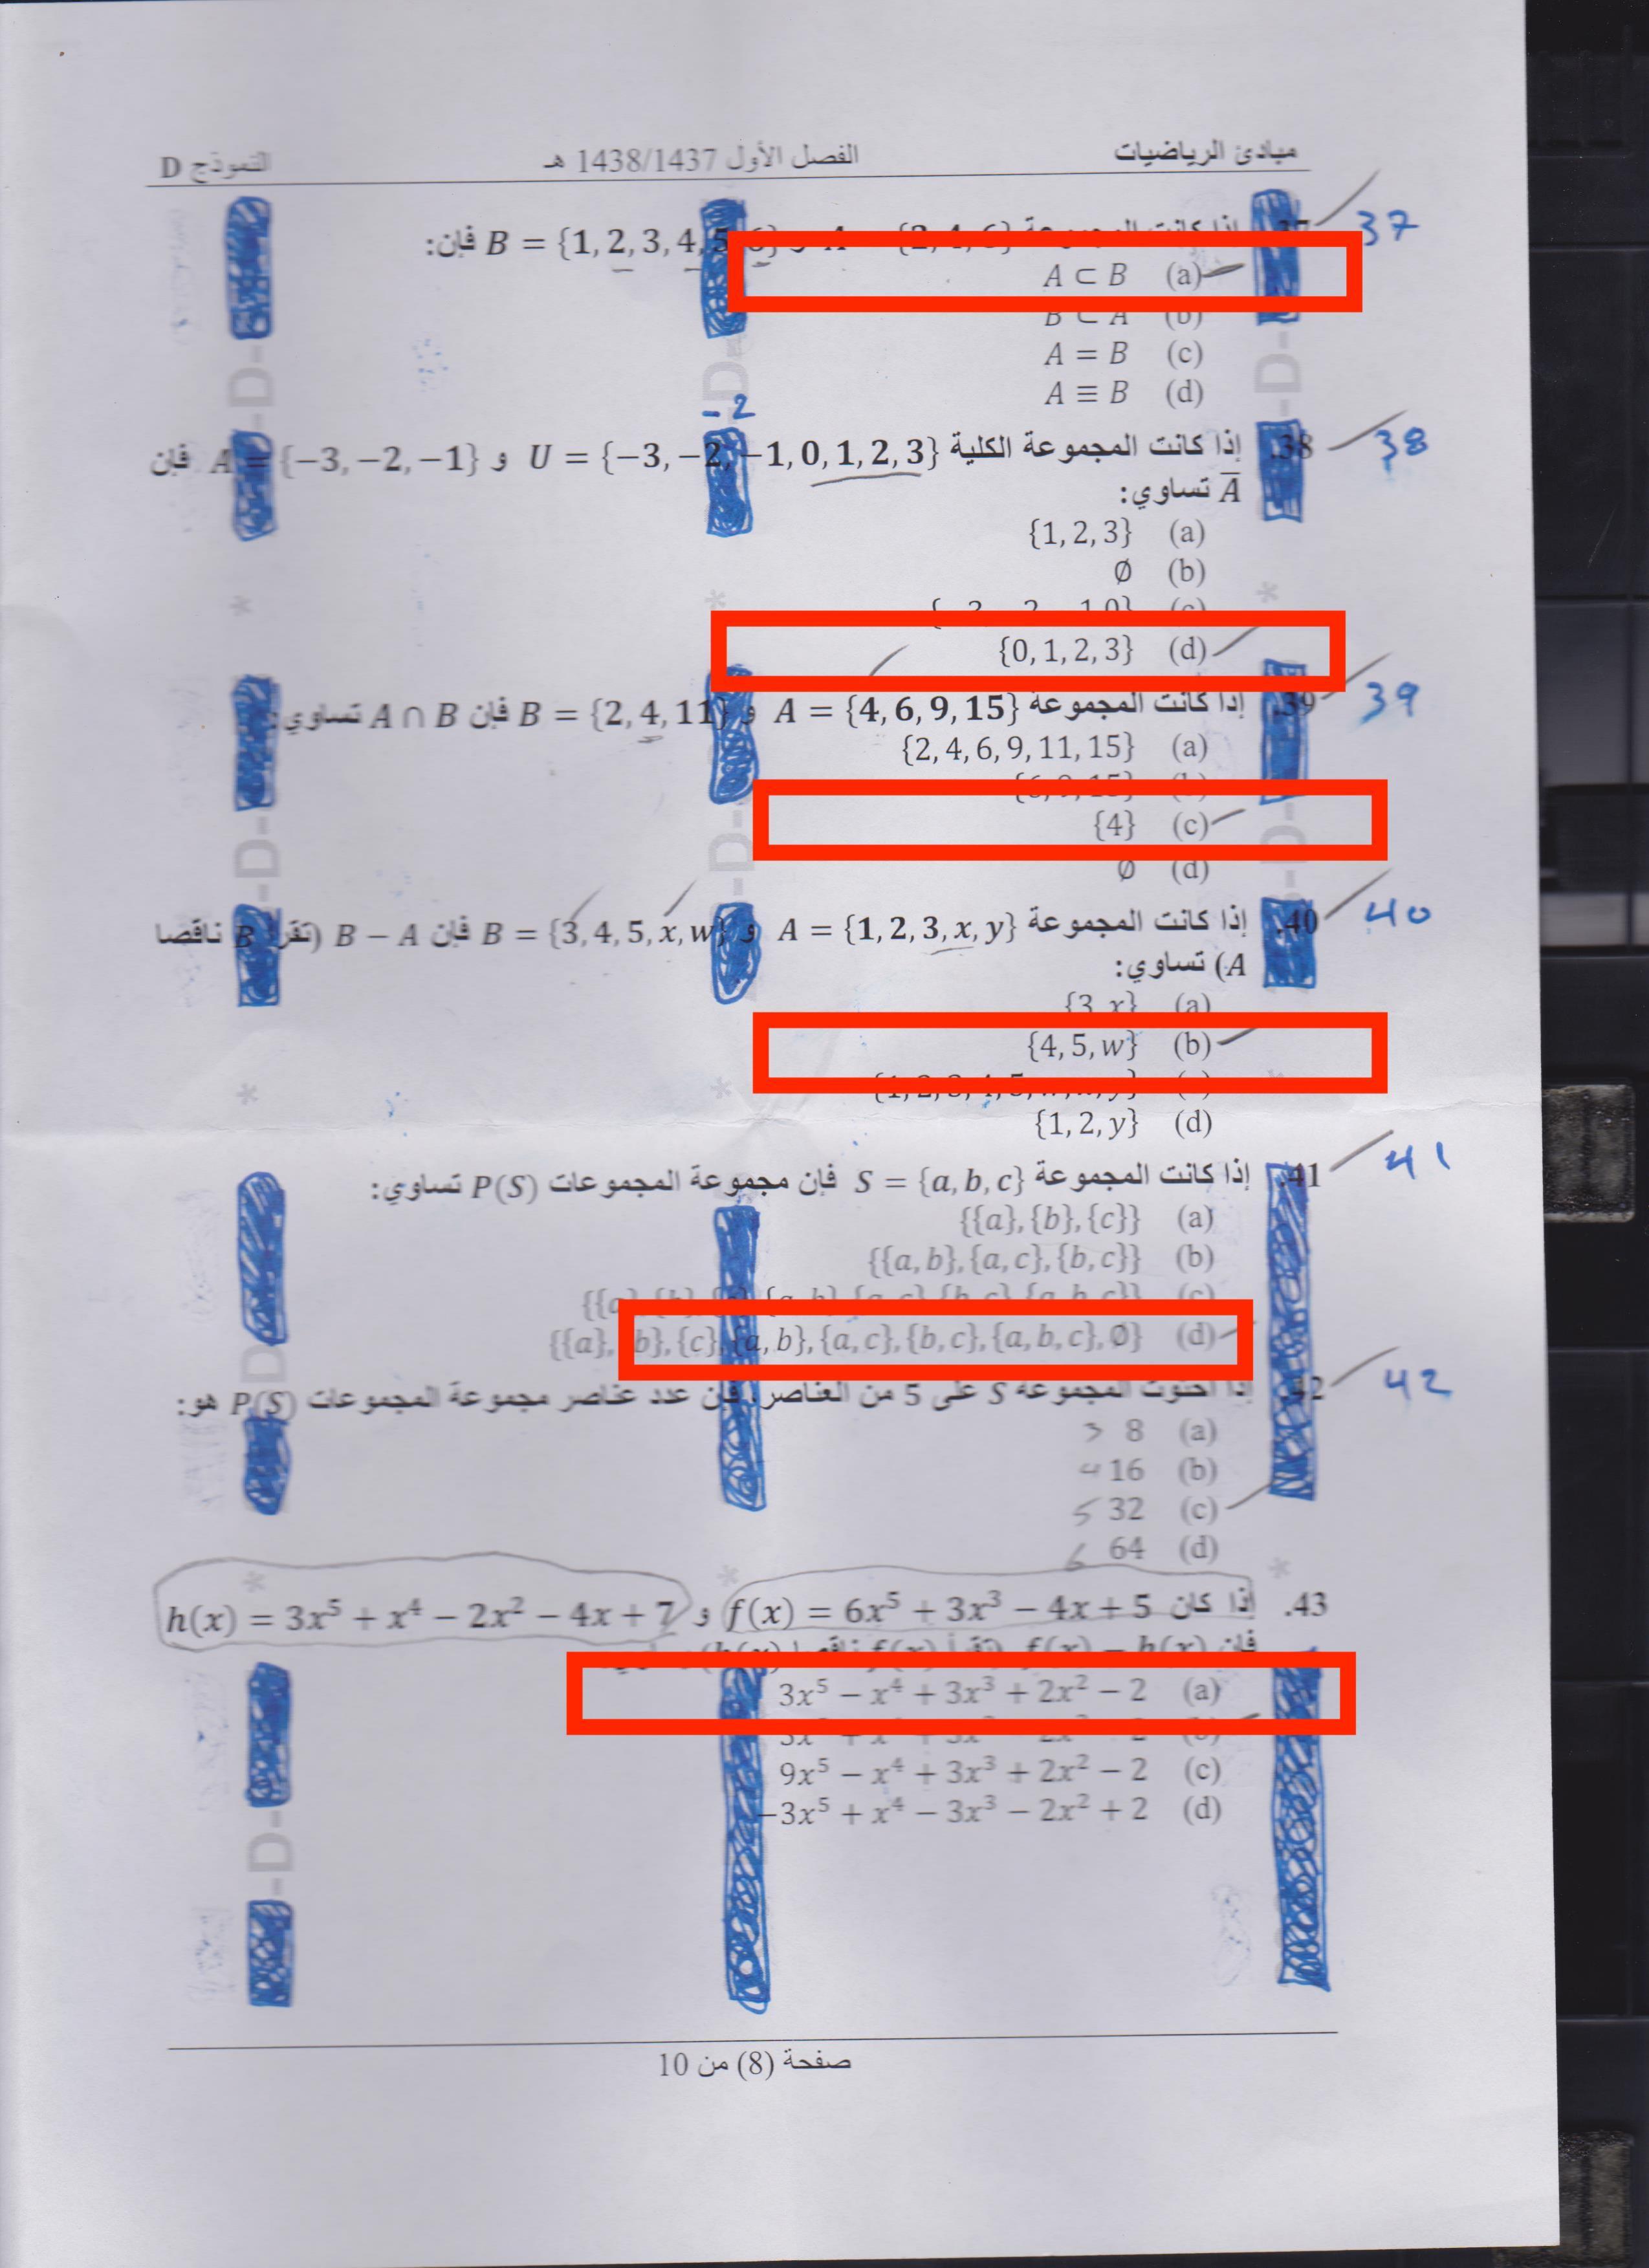 مبادئ الرياضيات الفصل الأول 1438/1437 هـ النموذج D
37 إذا كانت المجموعة A = {2, 4, 6} و B = {1, 2, 3, 4, 5, 6} فإن:
37
(a) A ⊂ B
(b) B ⊂ A
(c) A = B
(d) A ≡ B
-2
.38 إذا كانت المجموعة الكلية U = {−3, −2, −1, 0, 1, 2, 3} و A = {−3, −2, −1} فإن
38
A̅ تساوي:
(a) {1, 2, 3}
(b) ∅
(c)
(d) {0, 1, 2, 3}
.39 إذا كانت المجموعة A = {4, 6, 9, 15} و B = {2, 4, 11} فإن A ∩ B تساوي:
39
(a) {2, 4, 6, 9, 11, 15}
(b) {6, 9, 15}
(c) {4}
(d) ∅
.40 إذا كانت المجموعة A = {1, 2, 3, x, y} و B = {3, 4, 5, x, w} فإن B − A (تقرأ B ناقصا
40
A) تساوي:
(a) {3, x}
(b) {4, 5, w}
{1, 2, 3, 4, 5, w, x, y}
(d) {1, 2, y}
.41 إذا كانت المجموعة S = {a, b, c} فإن مجموعة المجموعات P(S) تساوي:
41
(a) {{a}, {b}, {c}}
(b) {{a, b}, {a, c}, {b, c}}
(c) {{a}, {b}, {c}, {a, b}, {a, c}, {b, c}, {a, b, c}}
(d) {{a}, {b}, {c}, {a, b}, {a, c}, {b, c}, {a, b, c}, ∅}
42 إذا احتوت المجموعة S على 5 من العناصر، فإن عدد عناصر مجموعة المجموعات P(S) هو:
42
(a) 8 3
(b) 16 4
(c) 32 5
(d) 64 6
.43 إذا كان f(x) = 6x⁵ + 3x³ − 4x + 5 و h(x) = 3x⁵ + x⁴ − 2x² − 4x + 7
فإن f(x) − h(x)
(a) 3x⁵ − x⁴ + 3x³ + 2x² − 2
(b)
(c) 9x⁵ − x⁴ + 3x³ + 2x² − 2
(d) −3x⁵ + x⁴ − 3x³ − 2x² + 2
صفحة (8) من 10